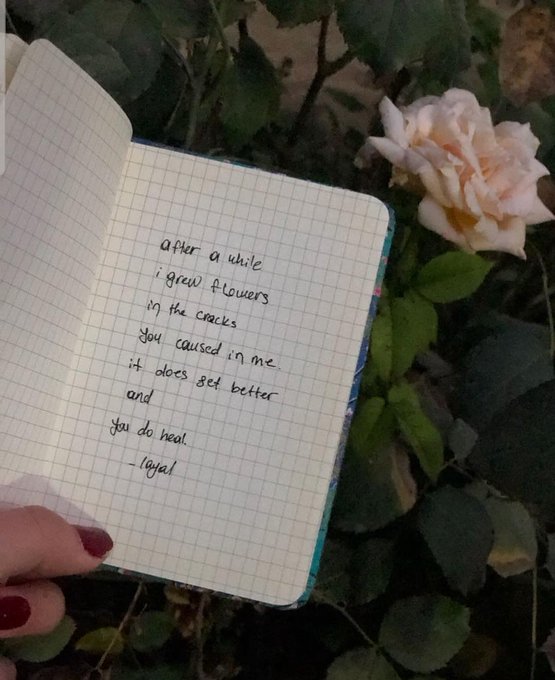 after a while
i grew flowers
in the cracks
you caused in me.
it does get better
and
you do heal.
- layal